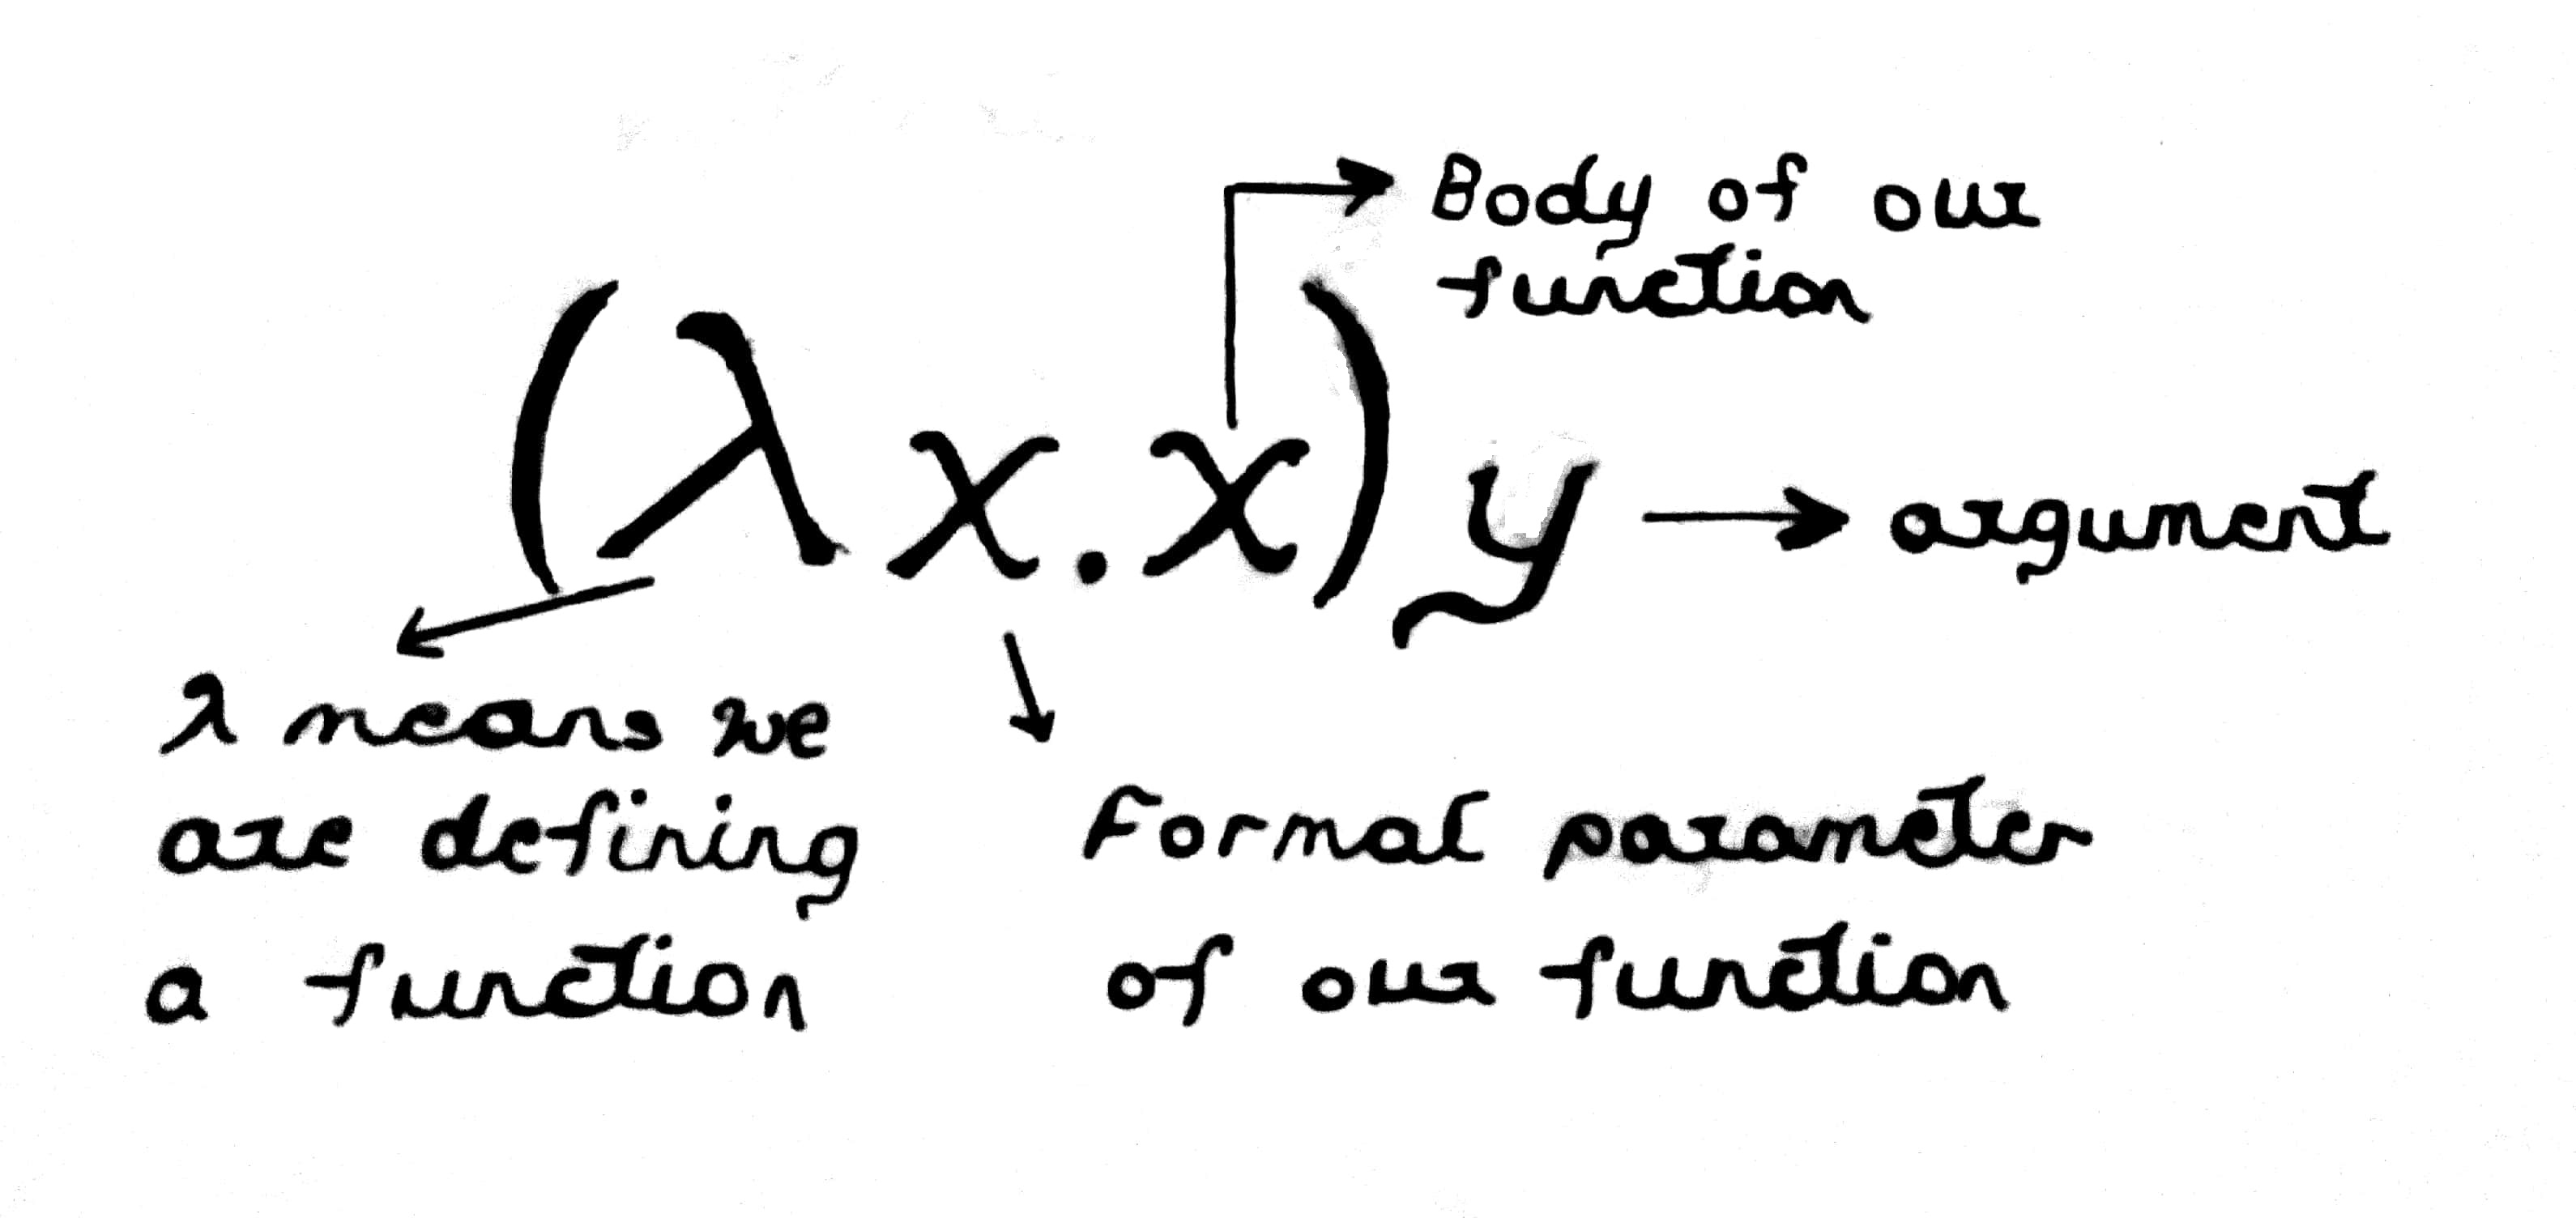 Body of our
function
(λx.x)y → argument
λ means we
are defining
a function
Formal parameter
of our function